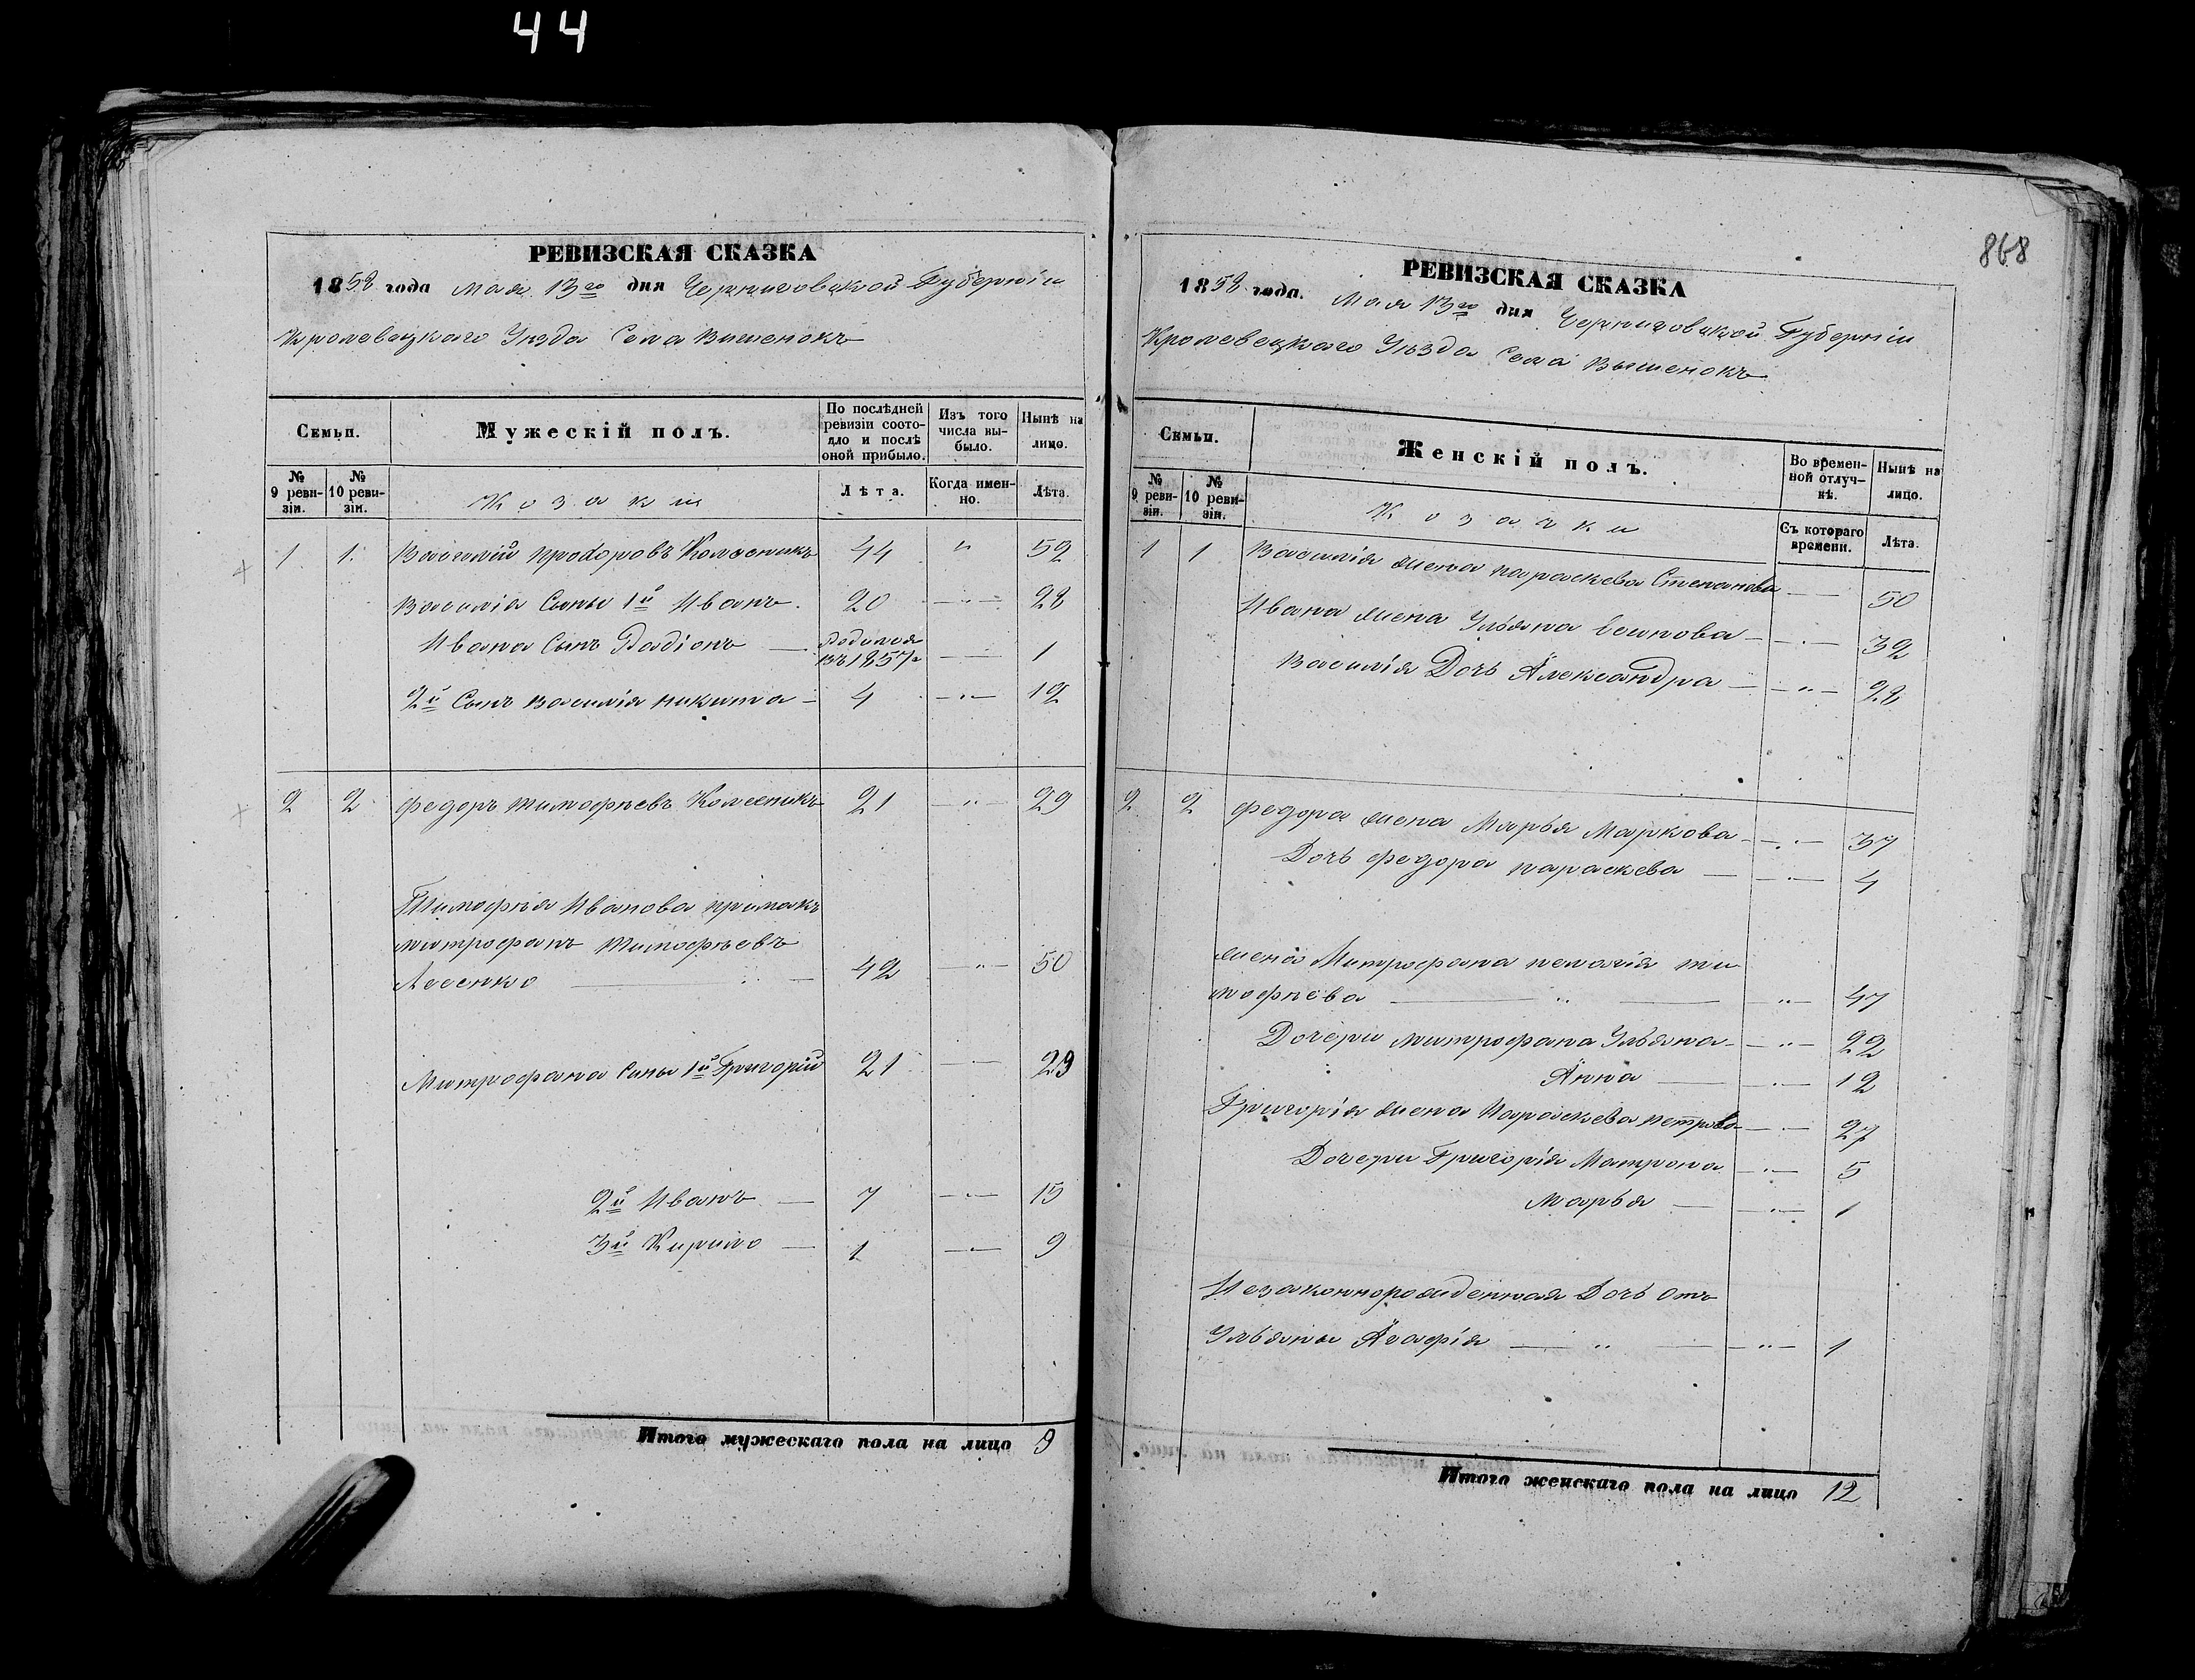 44
РЕВИЗСКАЯ СКАЗКА
1858 года Мая 13го дня Черниговской Губерніи
Кролевецкаго Уѣзда Села Вишенокъ
Семьи.
Мужескій полъ.
По послѣдней ревизіи состояло и послѣ оной прибыло.
Изъ того числа выбыло.
Нынѣ на лицо.
№ 9 ревизіи.
№ 10 ревизіи.
Козаки
Лѣта.
Когда именно.
Лѣта.
1 1. Василій Прохоровъ Колесникъ 44 " 52
Василія Сыны 1й Иванъ. 20 — " — 28
Ивана Сынъ Радіонъ — Родился въ 1857 г — 1
2й Сынъ Василія Никита — 4 — " — 12
2 2 Федоръ Тимофѣевъ Колесникъ 21 — " — 29
Тимофѣя Иванова примакъ
Митрофанъ Тимофѣевъ
Лесенко — " — 42 — " — 50
Митрофана Сыны 1й Григорій 21 — 29
2й Иванъ — 7 — " — 15
3й Кирило — 1 — " — 9
Итого мужескаго пола на лицо 9
868
РЕВИЗСКАЯ СКАЗКА
1858 года. Мая 13го дня Черниговской Губерніи
Кролевецкаго Уѣзда Села Вишенокъ
Семьи.
Женскій полъ.
Во временной отлучкѣ.
Нынѣ на лицо.
№ 9 ревизіи.
№ 10 ревизіи.
Козачки
Съ котораго времени.
Лѣта.
1 1 Василія жена Параскева Степанова — 50
Ивана жена Ульяна Осипова — " — 32
Василія Дочь Александра — " — 28
2 2 Федора жена Марья Маркова — " — 37
Дочь Федора Параскева — " — 4
жена Митрофана Пелагія Ти
мофѣева — " — " — 47
Дочери Митрофана Ульяна — " — 22
Анна — " — 12
Григорія жена Параскева Петрова — " — 27
Дочери Григорія Матрона — " — 5
Марья — " — 1
Незаконнорожденная Дочь отъ
Ульяны Агафія — " — " — 1
Итого женскаго пола на лицо 12